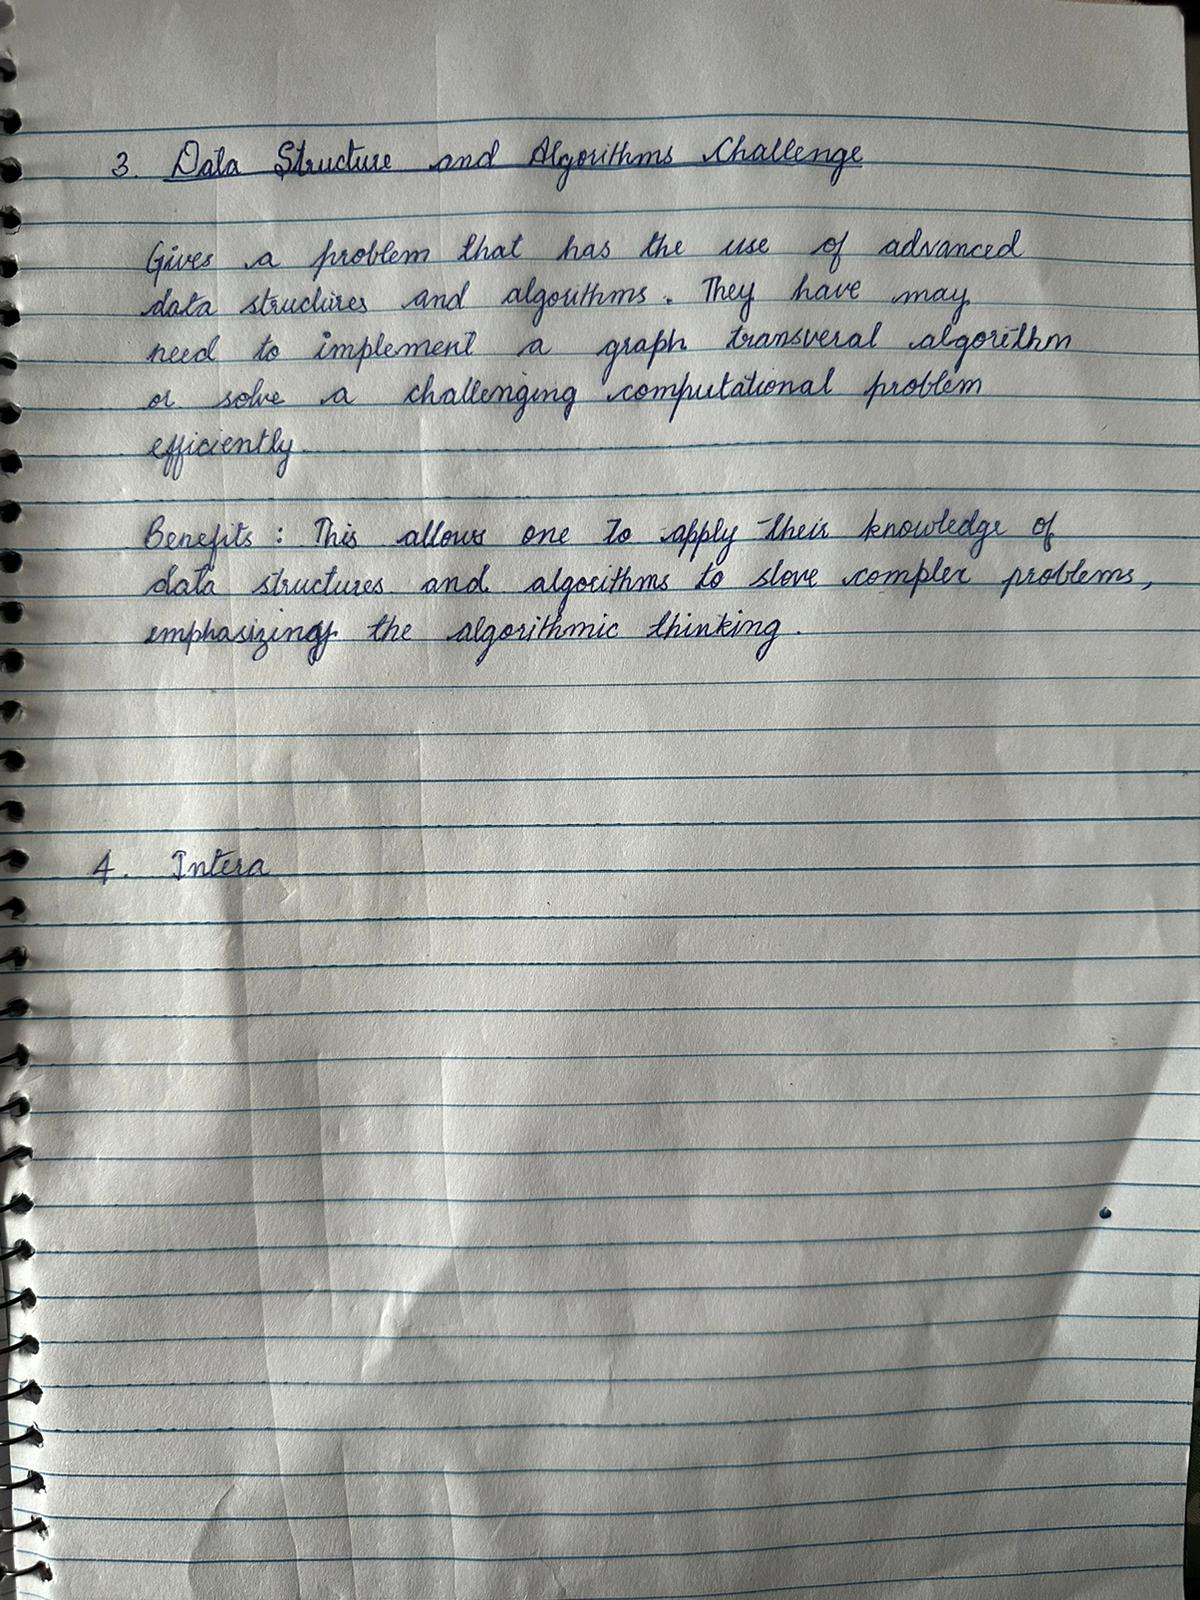 3. Data Structure and Algorithms Challenge
Gives a problem that has the use of advanced
data structures and algorithms. They have may
need to implement a graph transveral algorithm
or solve a challenging computational problem
efficiently.
Benefits : This allows one to apply their knowledge of
data structures and algorithms to slove complex problems,
emphasizing the algorithmic thinking.
4. Intera